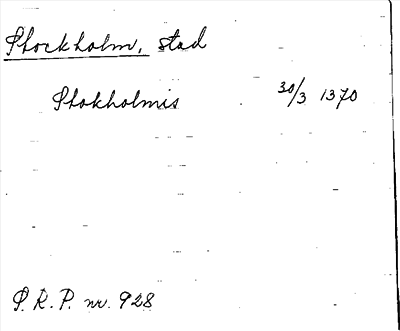 Stockholm, stad
Stokholmis 30/3 1370
S.R.P. nr. 928